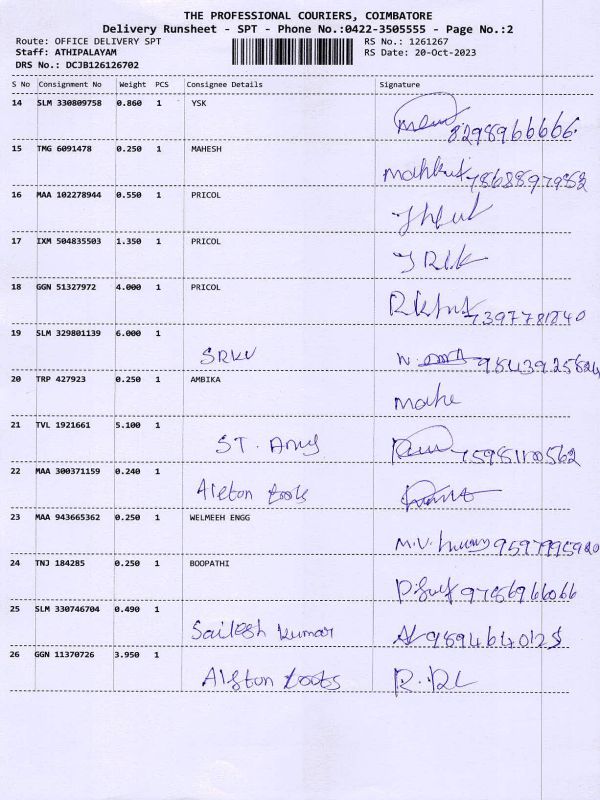 THE PROFESSIONAL COURIERS, COIMBATORE
Delivery Runsheet - SPT - Phone No.:0422-3505555 - Page No.:2
Route: OFFICE DELIVERY SPT RS No.: 1261267
Staff: ATHIPALAYAM RS Date: 20-Oct-2023
DRS No.: DCJB126126702
S No Consignment No Weight PCS Consignee Details Signature
14 SLM 330809758 0.860 1 YSK
8298966666
15 TMG 6091478 0.250 1 MAHESH
7868897982
16 MAA 102278944 0.550 1 PRICOL
17 IXM 504835503 1.350 1 PRICOL
18 GGN 51327972 4.000 1 PRICOL
7397781840
19 SLM 329801139 6.000 1
SRKV 9843925824
20 TRP 427923 0.250 1 AMBIKA
21 TVL 1921661 5.100 1
ST. 75981100562
22 MAA 300371159 0.240 1
Alston tools
23 MAA 943665362 0.250 1 WELMEEH ENGG
M.V. 9597995920
24 TNJ 184285 0.250 1 BOOPATHI
9786966066
25 SLM 330746704 0.490 1
Sailesh kumar 9894640125
26 GGN 11370726 3.950 1
Alston tools